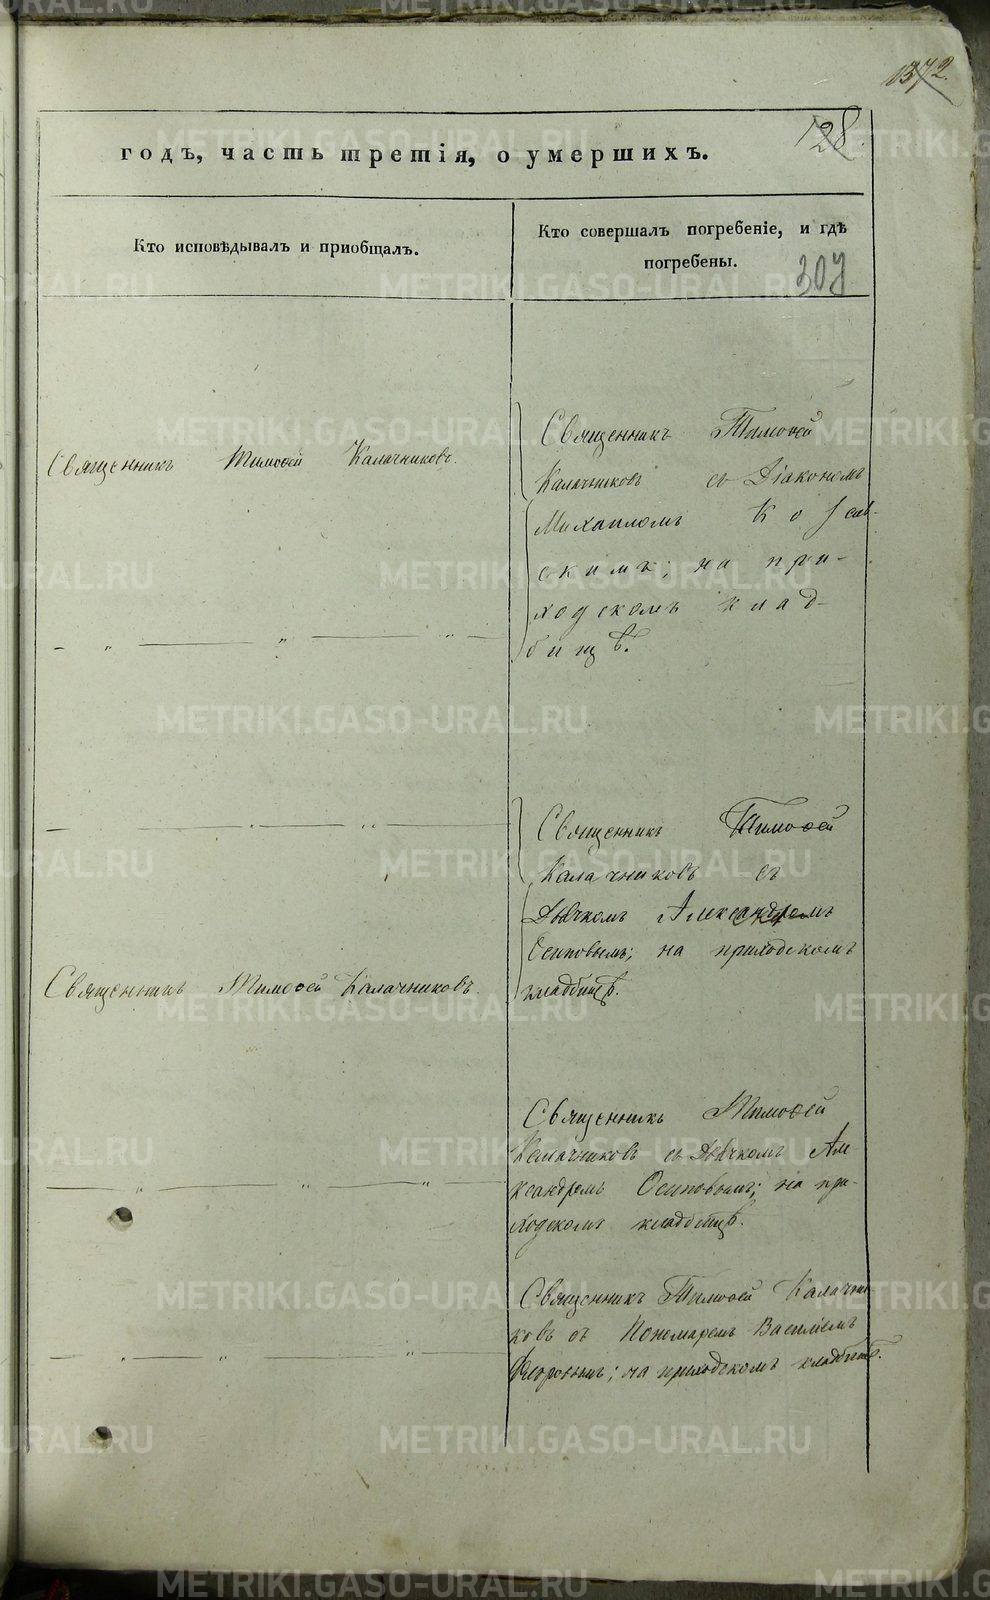 1372.
128.
годъ, часть третія, о умершихъ.
Кто исповѣдывалъ и пріобщалъ.
Кто совершалъ погребеніе, и гдѣ
погребены.
307
Священникъ Тимоѳей Калачниковъ.
Священникъ Тимоѳей
Калачниковъ съ Діакономъ
Михаиломъ
скимъ; на при-
ходскомъ клад-
бищѣ.
Священникъ Тимоѳей
Калачниковъ съ
Дьячкомъ Александромъ
Осиповымъ; на приходскомъ
кладбищѣ.
Священникъ Тимоѳей Калачниковъ.
Священникъ Тимоѳей
Калачниковъ съ Дьячкомъ Але-
ксандромъ Осиповымъ; на при-
ходскомъ кладбищѣ.
Священникъ Тимоѳей Калачни-
ковъ съ Пономаремъ Василіемъ
на приходскомъ кладбищѣ.
METRIKI.GASO-URAL.RU